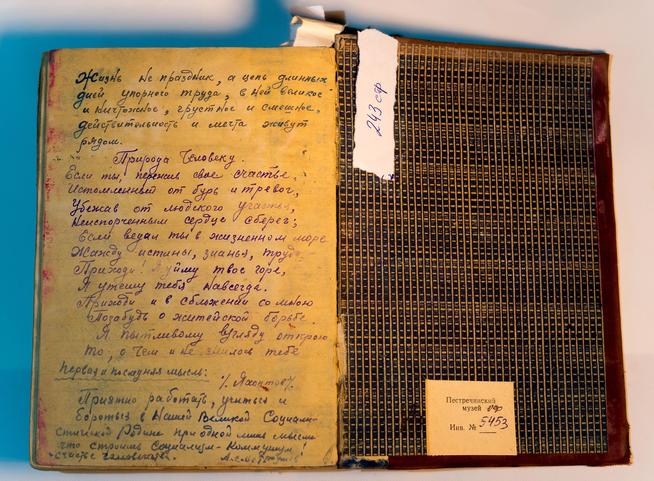 Жизнь не праздник, а цепь длинных
дней упорного труда, в ней великое
и ничтожное, грустное и смешное,
действительность и мечта живут
рядом.
Природа Человеку.
Если ты, пережив свое счастье,
Истомленный от бурь и тревог,
Убежав от людского участья,
Неиспорченным сердце сберег;
Если ведал ты в жизненном море
Жажду истины, знанья, труда,
Приходи! Я уйму твое горе,
Я утешу тебя навсегда.
Приходи и в сближении со мною
Позабудь о житейской борьбе.
Я пытливому взгляду открою
То, о чем и не снилось тебе
/. Яхонтов/.
Первая и последняя мысль:
Приятно работать, учиться и
бороться в Нашей Великой Социали-
стической Родине при одной лишь мысли
что строишь Социализм - Коммунизм!
счастье человечества.
243 оф
Пестречинский
музей оф
Инв. № 5453